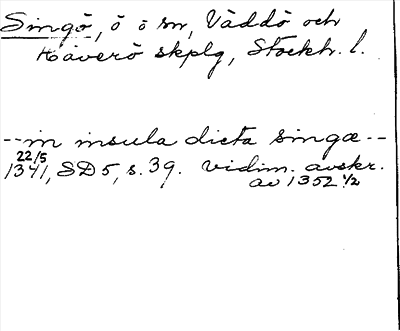 Singö, ö o sn, Väddö och
Häverö skplg, Stockh. l.
--in insula dicta singæ--
22/5
1341, SD 5, s. 39. vidim. avskr.
av 1352 1/2